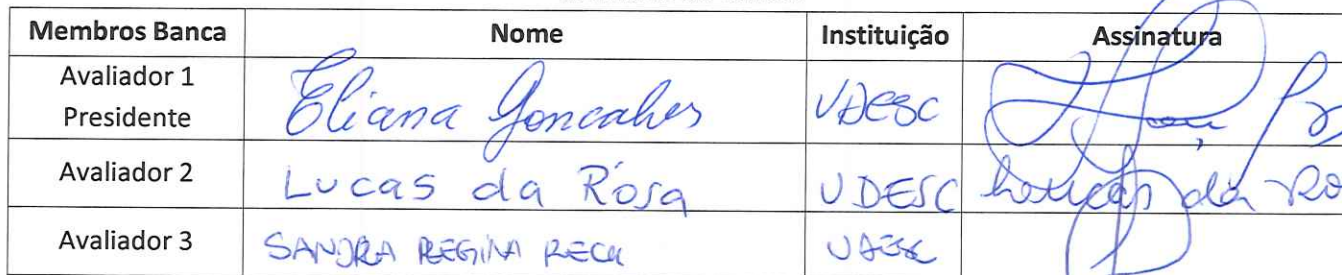 Membros Banca Nome Instituição Assinatura
Avaliador 1
Presidente Eliana Goncalves UDESC
Avaliador 2 Lucas da Rosa UDESC Lucas da Ro
Avaliador 3 SANDRA REGINA RECH UDESC